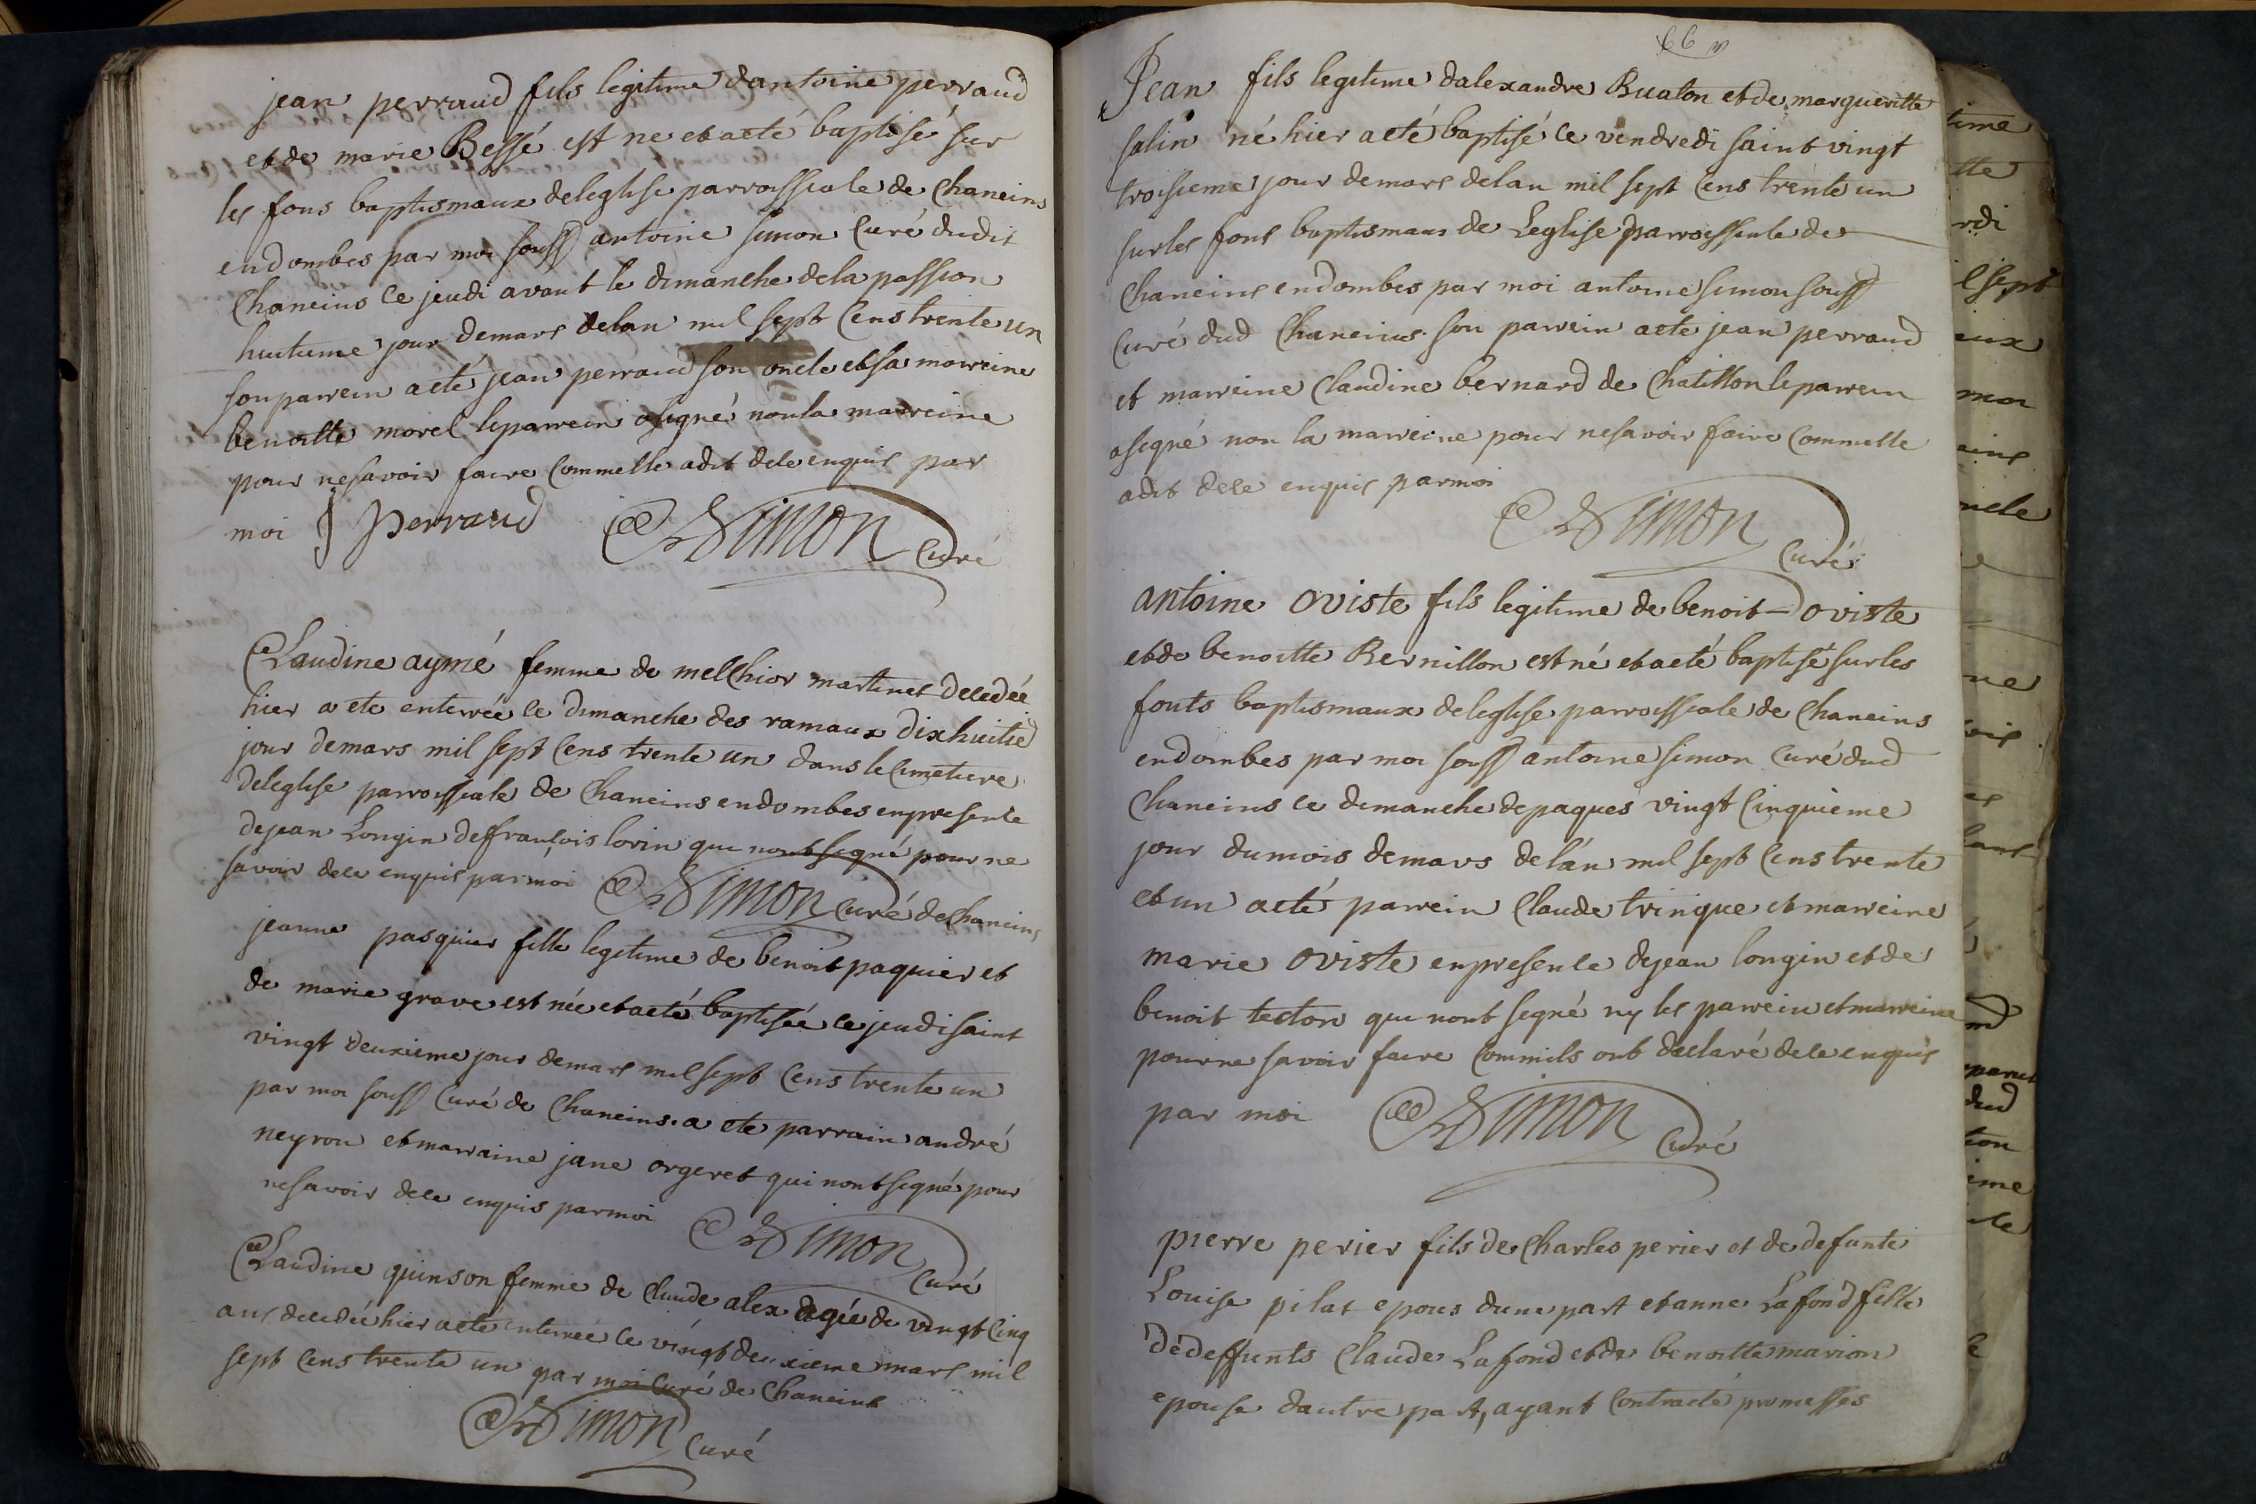 jean perraud fils legitime dantoine perraud
et de marie Bessé est ne et a eté baptisé sur
les fons baptismaux de leglise parroissiale de Chaneins
en dombes par moi souss antoine simon Curé dudit
Chaneins ce jeudi avant le dimanche de la passion
huitieme jour de mars de lan mil sept Cens trente un
son parrein a eté jean perraud son oncle et sa marreine
benoitte morel le parrein a signé non la marreine
pour ne savoir faire Comme elle a dit de ce enquis par
moi J perraud Simon Curé
Claudine aymé femme de melchior martinet decedée
hier a ete enterrée le dimanche des ramaux dixhuitie
jour de mars mil sept Cens trente un dans le Cimetiere
de leglise parroissiale de Chaneins en dombes en presence
de jean Longin de françois lorin qui nont signé pour ne
savoir de ce enquis par moi Simon Curé de Chaneins
jeanne pasquier fille legitime de benoit paquier et
de marie grave est née et a eté baptisée ce jeudi saint
vingt deuxieme jour de mars mil sept Cens trente un
par moi souss Curé de Chaneins. a ete parrain andré
neyron et marraine jane orgeret qui nont signé pour
ne savoir de ce enquis par moi Simon Curé
Claudine quinson femme de Claude alex agée de vingt Cinq
ans decedée hier a ete enterrée ce vingt deuxieme mars mil
sept Cens trente un par moi Curé de Chaneins
Simon Curé
66
Jean fils legitime dalexandre Bualon et de margueritte
salin né hier a eté baptisé ce vendredi saint vingt
troisieme jour de mars de lan mil sept Cens trente un
sur les fons baptismaux de Leglise parroissiale de
Chaneins en dombes par moi antoine simon souss
Curé dud Chaneins son parrein a ete jean perraud
et marreine Claudine bernard de Chatillon le parrein
a signé non la marreine pour ne savoir faire Comme elle
a dit de ce enquis par moi
Simon Curé
antoine oviste fils legitime de benoit oviste
et de benoitte Bernillon est né et a eté baptisé sur les
fonts baptismaux de leglise parroissiale de Chaneins
en dombes par moi souss antoine simon Curé dud
Chaneins ce dimanche de paques vingt Cinquieme
jour du mois de mars de lán mil sept Cens trente
et un a eté parrein Claude tringue et marreine
marie oviste en presence de jean longin et de
benoit teston qui nont signé ny les parrein et marreine
pour ne savoir faire Comme ils ont declaré de ce enquis
par moi Simon Curé
pierre perier fils de Charles perier et de defunte
Louise pilat epous dune part et anne Lafond fille
de deffunts Claude Lafond et de benoitte marion
epouse dautre part, ayant Contracté promesses